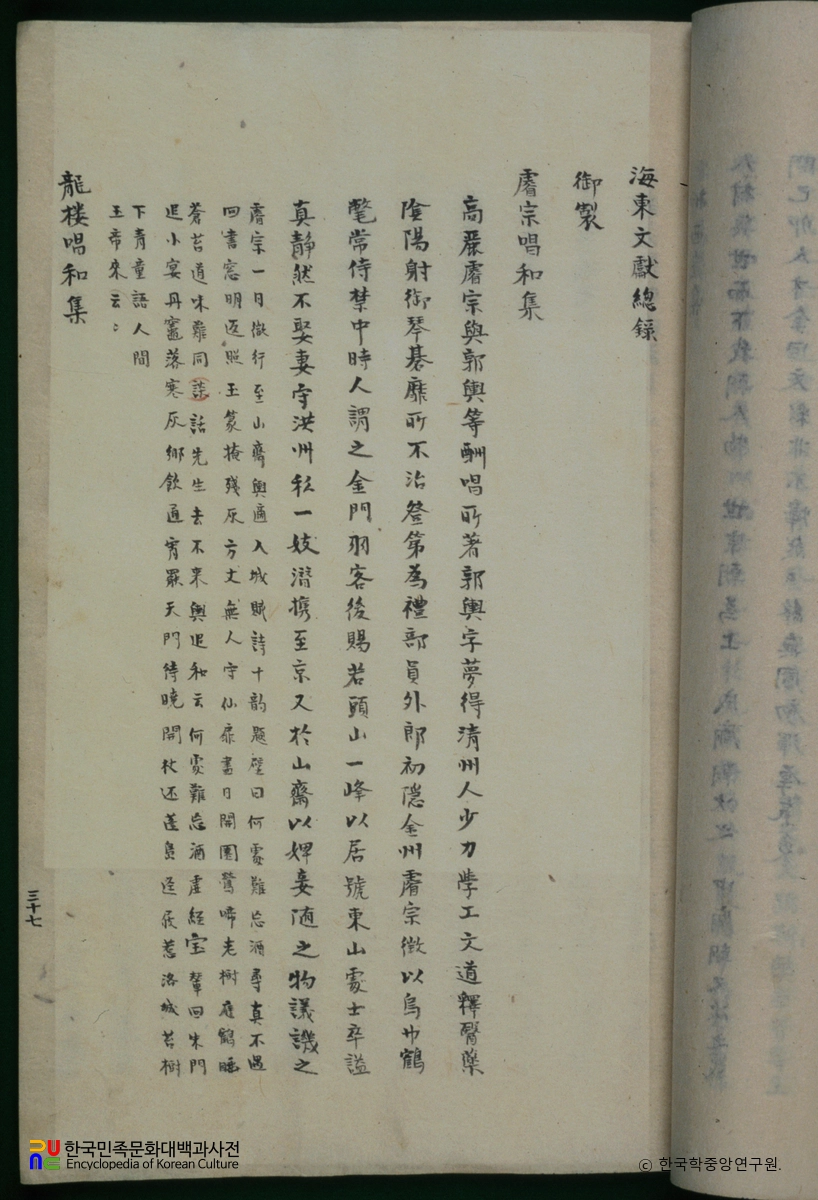 海東文獻總錄
御製
睿宗唱和集
高麗睿宗與郭輿等酬唱所著郭輿字夢得清州人少力學工文道釋醫藥
陰陽射御琴碁靡所不治登第為禮部員外郎初隱金州睿宗徵以烏巾鶴
氅常侍禁中時人謂之金門羽客後賜若頭山一峰以居號東山處士卒諡
真靜然不娶妻守洪州私一妓潛携至京又於山齋以婢妾随之物議譏之
睿宗一日微行至山齋輿適入城賦詩十韵題壁曰何處難忘酒尋真不遇
回書窓明返照玉篆掩殘灰方丈無人守仙扉盡日開園鶯啼老樹庭鶴睡
蒼苔道味難同談話先生去不来輿追和云何處難忘酒虛經宝輦回朱門
追小宴丹竈落寒灰鄉飲通宵罷天門待曉開杖还蓬島逕屐惹洛城苔樹
下青童語人間
玉帝來云〻
龍樓唱和集
三十七
한국민족문화대백과사전
Encyclopedia of Korean Culture
© 한국학중앙연구원.